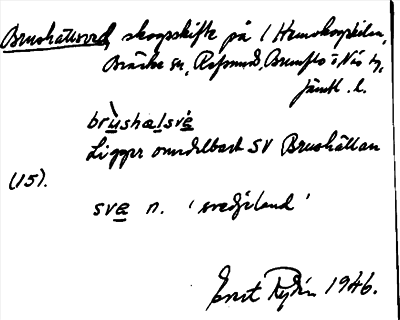 Brushättsved, skogsskifte på / Hemskogskilen,
Bräcke sn, Refsunds, Brunflo o Näs tg,
Jämtl. l.
brùshælsvè
Ligger omedelbart SV Brushättan
(15).
sve n. 'svedjeland'
Ernst Rydén 1946.